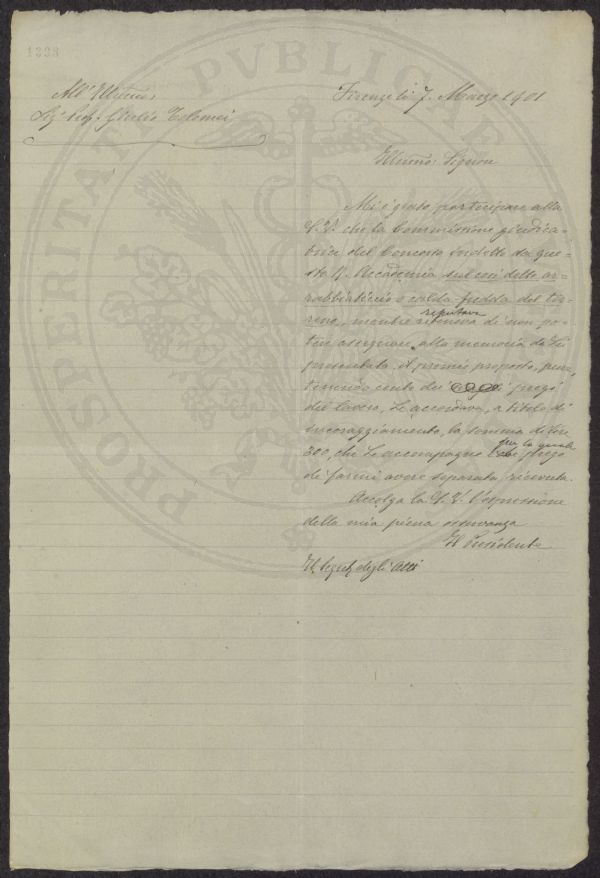 1338
PROSPERITATI PVBLICAE
All'Illmo:
Sigr. Prof. Giulio Tolomei
Firenze li 7. Marzo 1901
Illmo: Signore
Mi è grato partecipare alla
S.V. che la Commissione giudica-
trice del Concorso indetto da que-
sta R. Accademia sul così detto ar-
rabbiaticcio o calda-fredda del ter-
reno, mentre riteneva reputava di non po-
tere assegnare, alla memoria da Lei
presentata, il premio proposto, pure,
tenendo conto dei pregi
del lavoro, Le accordava, a titolo di
incoraggiamento, la somma di Lire
300, che Le accompagno per la quale prego
di farmi avere separata ricevuta.
Accolga la S.V. l'espressione
della mia piena osservanza
Il Presidente
Il Segret. degli Atti